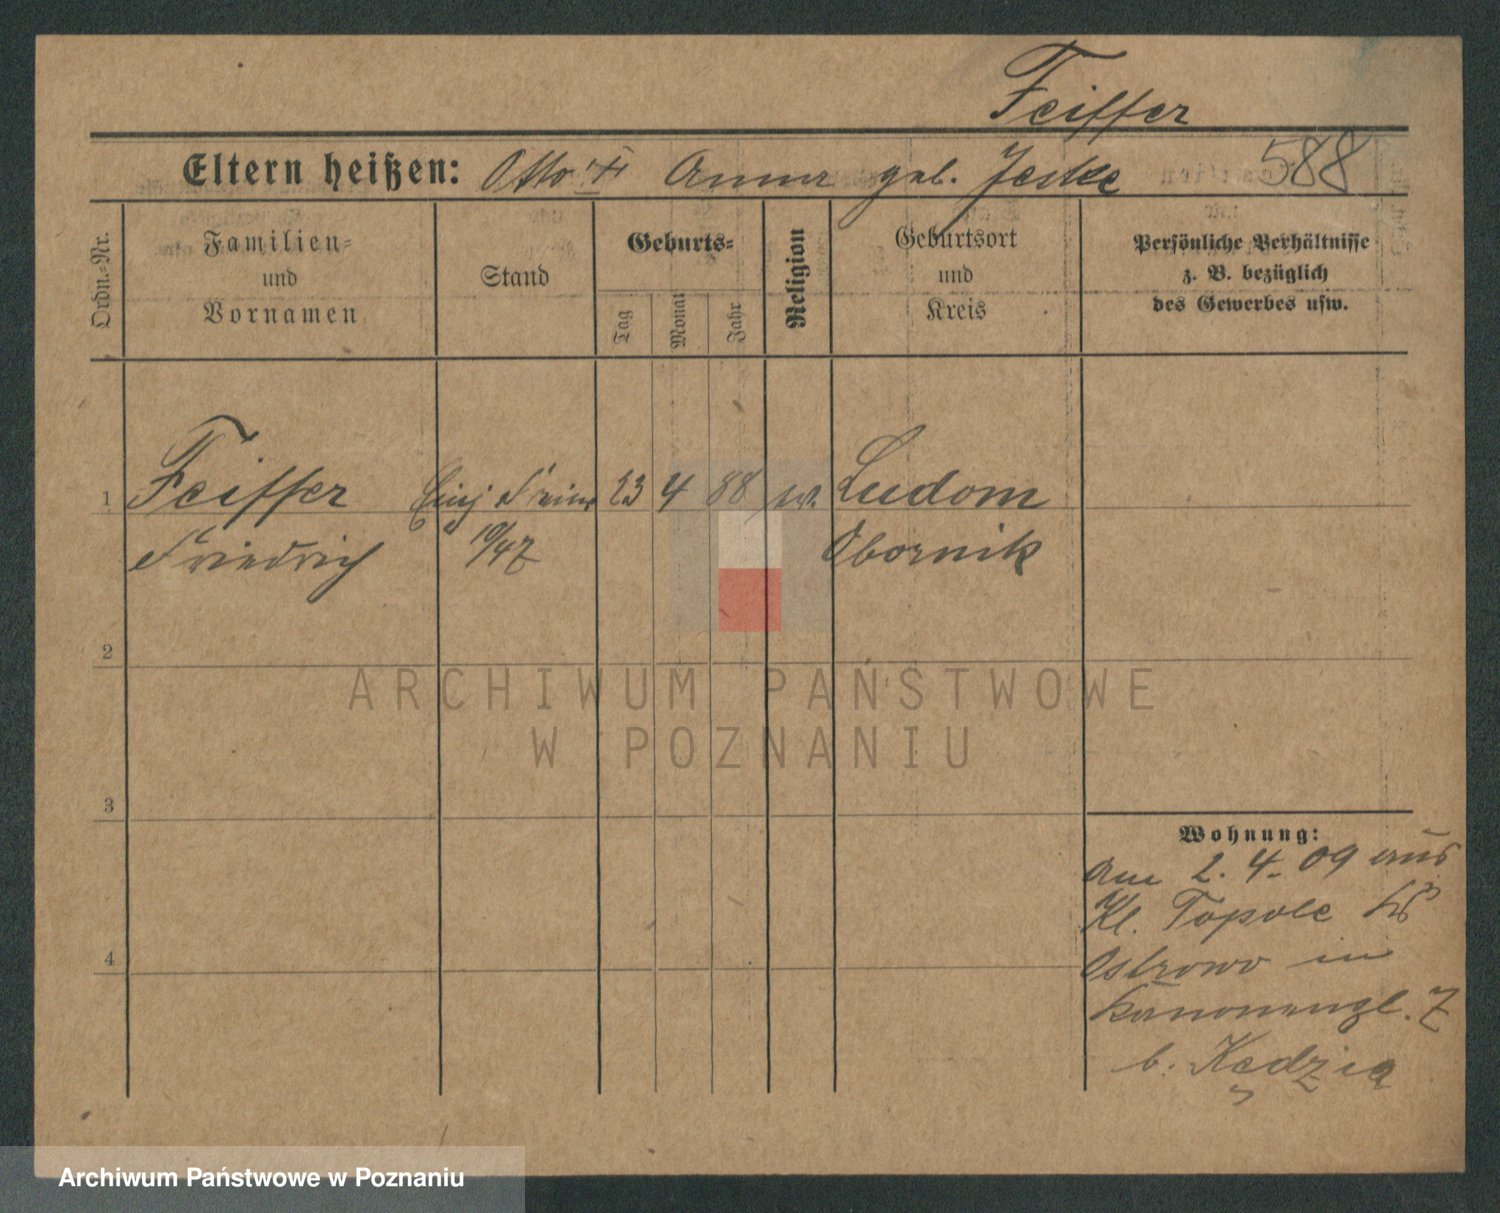 Feiffer
588
Eltern heißen: Otto + Anna geb. Jeske
Ordn.-Nr.
Familien-
und
Vornamen
Stand
Geburts-
Tag
Monat
Jahr
Religion
Geburtsort
und
Kreis
Persönliche Verhältnisse
z. B. bezüglich
des Gewerbes usw.
1 Feiffer Einj Freiw 23 4 88 ev. Ludom
Friedrich 10/47 Obornik
2
3
4
Wohnung:
Am 2. 4. 09 aus
Kl. Topole
Ostrowo in
Kanonengl. 7
b. Kędzia
ARCHIWUM PAŃSTWOWE
W POZNANIU
Archiwum Państwowe w Poznaniu